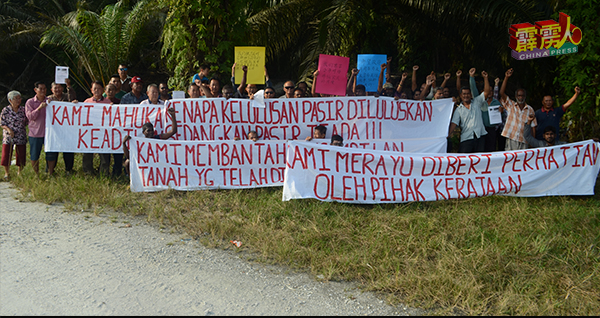 霹雳人
CHINA PRESS
KAMI MAHUKA KENAPA KELULUSAN PASIR DILULUSKAN
KEAD
PASIR ADA !!!
KAMI MEMBANTAH
TANAH YG TELAH DI
KAMI MERAYU DIBERI PERHATIAN
OLEH PIHAK KERAJAAN